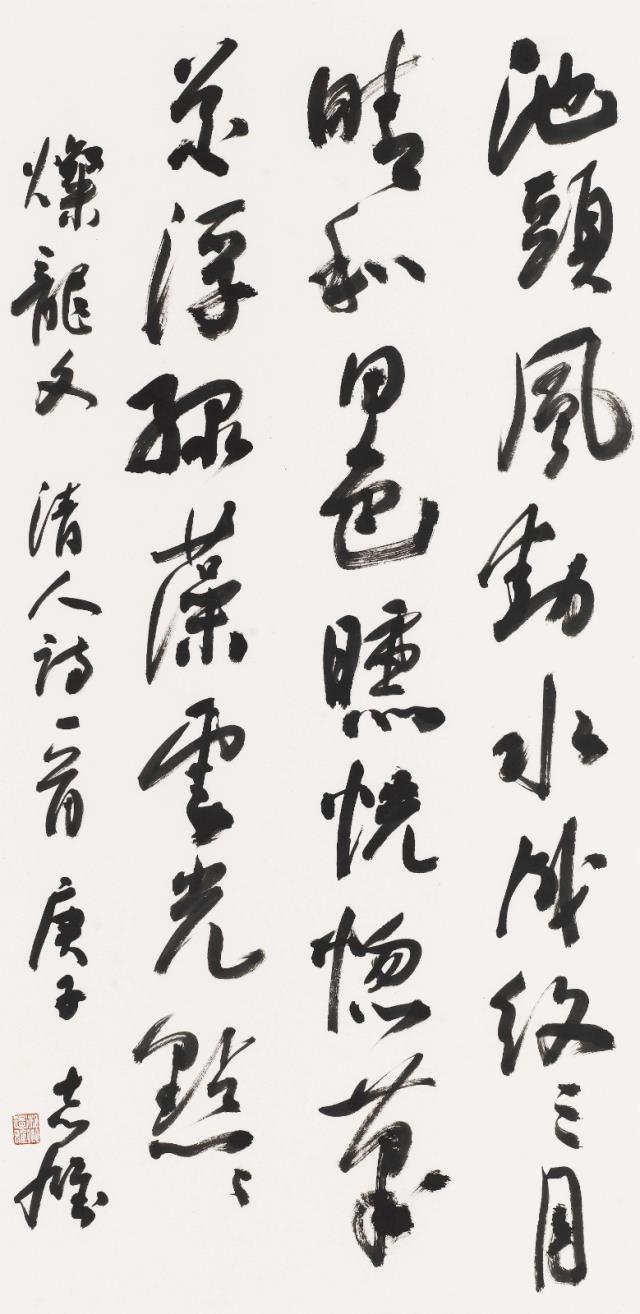 池頭風動水成紋三月
晴和日色曛恍惚筆
花浮綠藻雲光點〻
燦龍文 清人詩一首 庚子 志雄